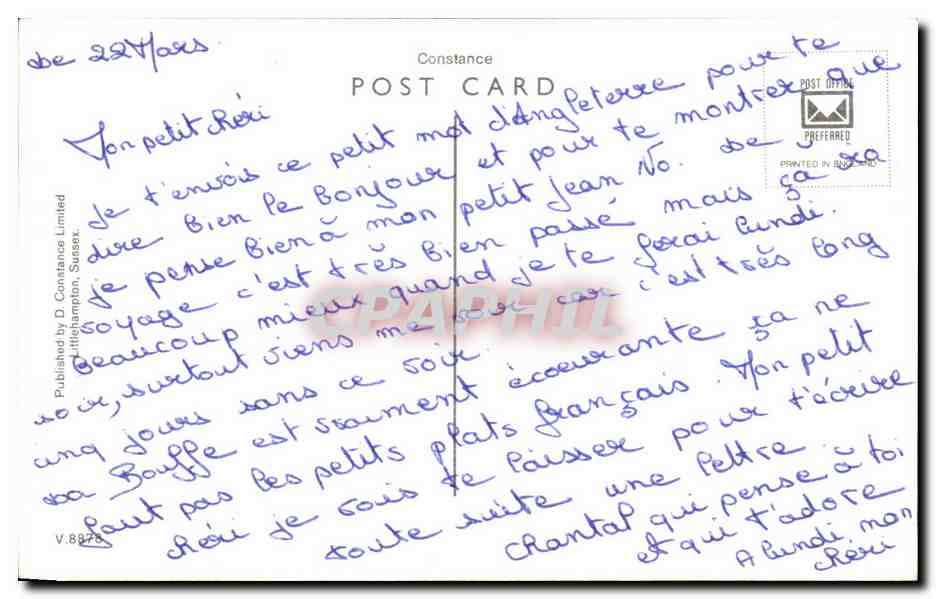 Le 22 Mars.
Constance
POST CARD
POST OFFICE
PREFERRED
PRINTED IN ENGLAND
Mon petit chéri
Je t'envois ce petit mot d'Angleterre pour te
dire bien le bonjour et pour te montrer que
je pense bien à mon petit Jean No. Le
voyage c'est très bien passé mais ça va
beaucoup mieux quand je te ferai lundi.
soir, surtout viens me voir car c'est très long
cinq jours sans ce voir.
La Bouffe est vraiment écoeurante ça ne
faut pas les petits plats français. Mon petit
chéri je vais te laisser pour t'écrire
toute suite une lettre.
Chantal qui pense à toi
et qui t'adore
A lundi mon
chéri
Published by D. Constance Limited
Littlehampton, Sussex.
V.8878
CPAPHIL